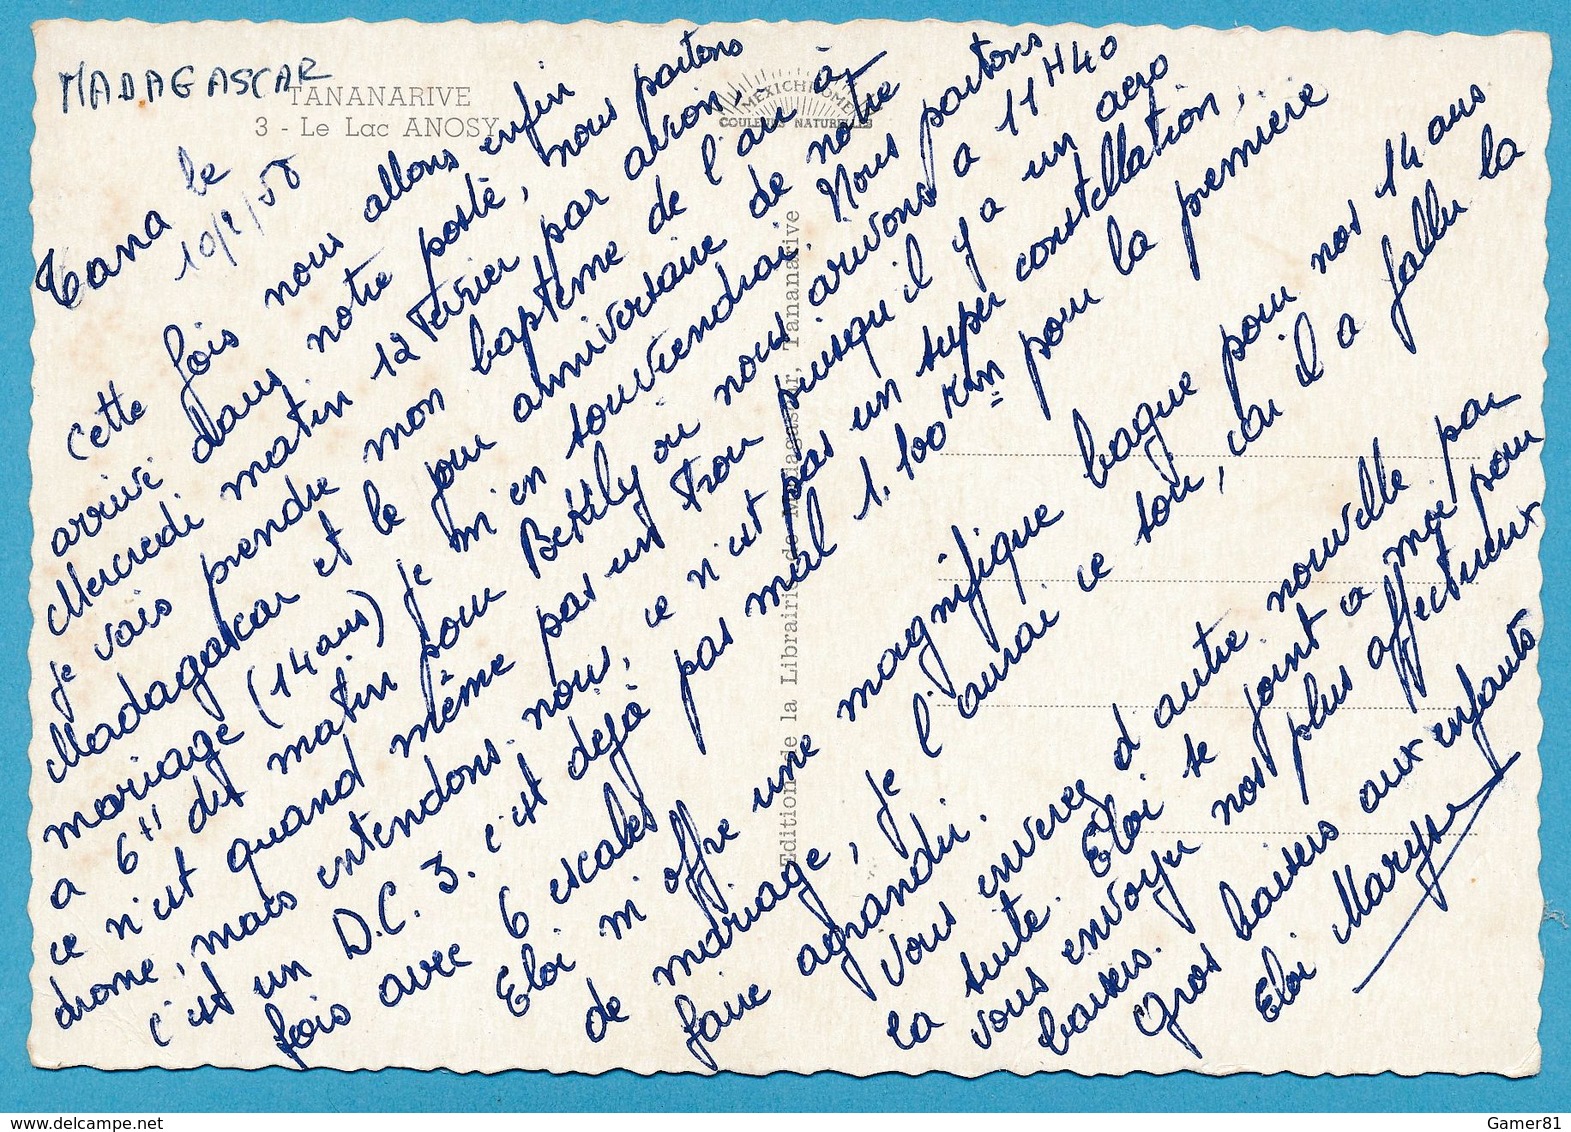 MADAGASCAR
TANANARIVE
3 - Le Lac ANOSY
MEXICHROME
COULEURS NATURELLES
Editions de la Librairie de Madagascar, Tananarive
Tana le
10/2/58
Cette fois nous allons enfin
arrivé dans notre poste, nous partons
Mercredi matin 12 Fevrier par avion,
je vais prendre mon baptème de l'air à
Madagascar et le jour anniversaire de notre
mariage (14 ans) je m'en souviendrai. Nous partons
a 6H du matin pour Bekily ou nous arrivons a 11H40
ce n'est quand même pas un trou puisqu'il y a un aero
drome, mais entendons-nous, ce n'est pas un super constellation,
c'est un D.C. 3. c'est dejà pas mal 1.100 Km pour la première
fois avec 6 escales
Eloi m'offre une magnifique bague pour nos 14 ans
de mariage, je l'aurai ce soir, car il a fallu la
faire agrandir.
Vous enverez d'autre nouvelle par
la suite. Eloi se joint a moi pour
vous envoyer nos plus affectueux
baisers.
Gros baisers aux enfants
Eloi Maryse
Gamer81